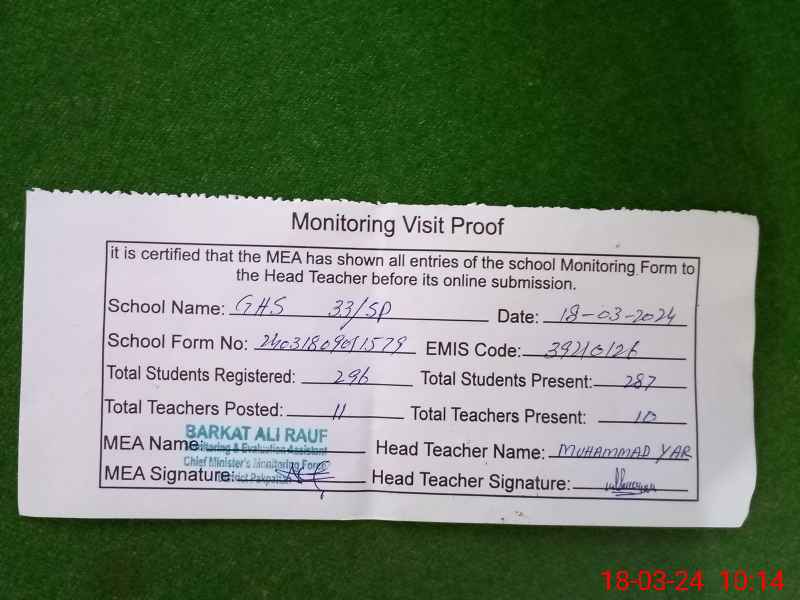 Monitoring Visit Proof
it is certified that the MEA has shown all entries of the school Monitoring Form to
the Head Teacher before its online submission.
School Name: GHS 33/SP Date: 18-03-2024
School Form No: EMIS Code: 39210126
Total Students Registered: 296 Total Students Present: 287
Total Teachers Posted: 11 Total Teachers Present: 10
BARKAT ALI RAUF
MEA Name: Head Teacher Name: MUHAMMAD YAR
Monitoring & Evaluation Assistant
Chief Minister's Monitoring Force
MEA Signature: Head Teacher Signature:
District Pakpattan
18-03-24 10:14